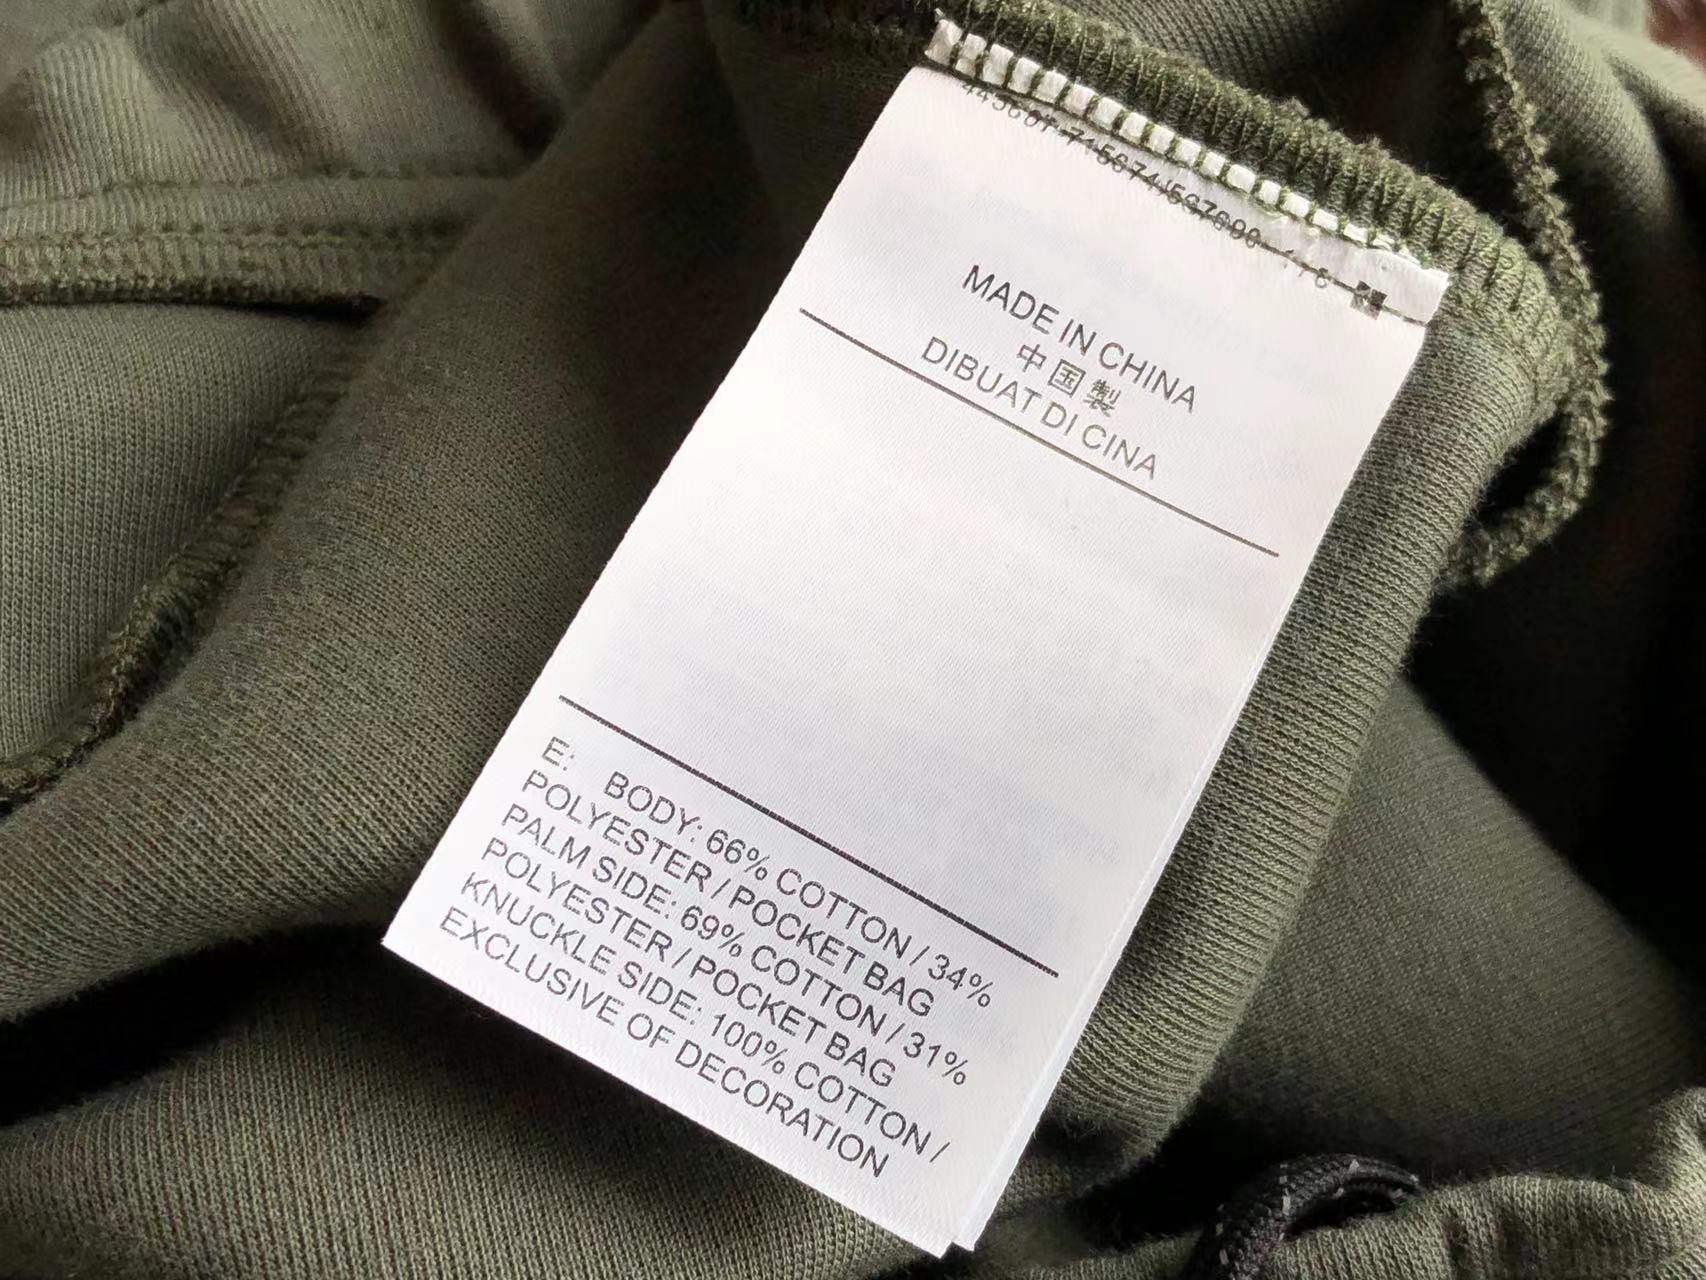 MADE IN CHINA
中国製
DIBUAT DI CINA
E: BODY: 66% COTTON / 34%
POLYESTER / POCKET BAG
PALM SIDE: 69% COTTON / 31%
POLYESTER / POCKET BAG
KNUCKLE SIDE: 100% COTTON /
EXCLUSIVE OF DECORATION